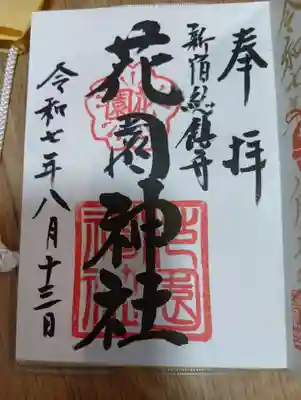 奉拝
新宿総鎮守
花園神社
令和七年八月十三日
花園神社